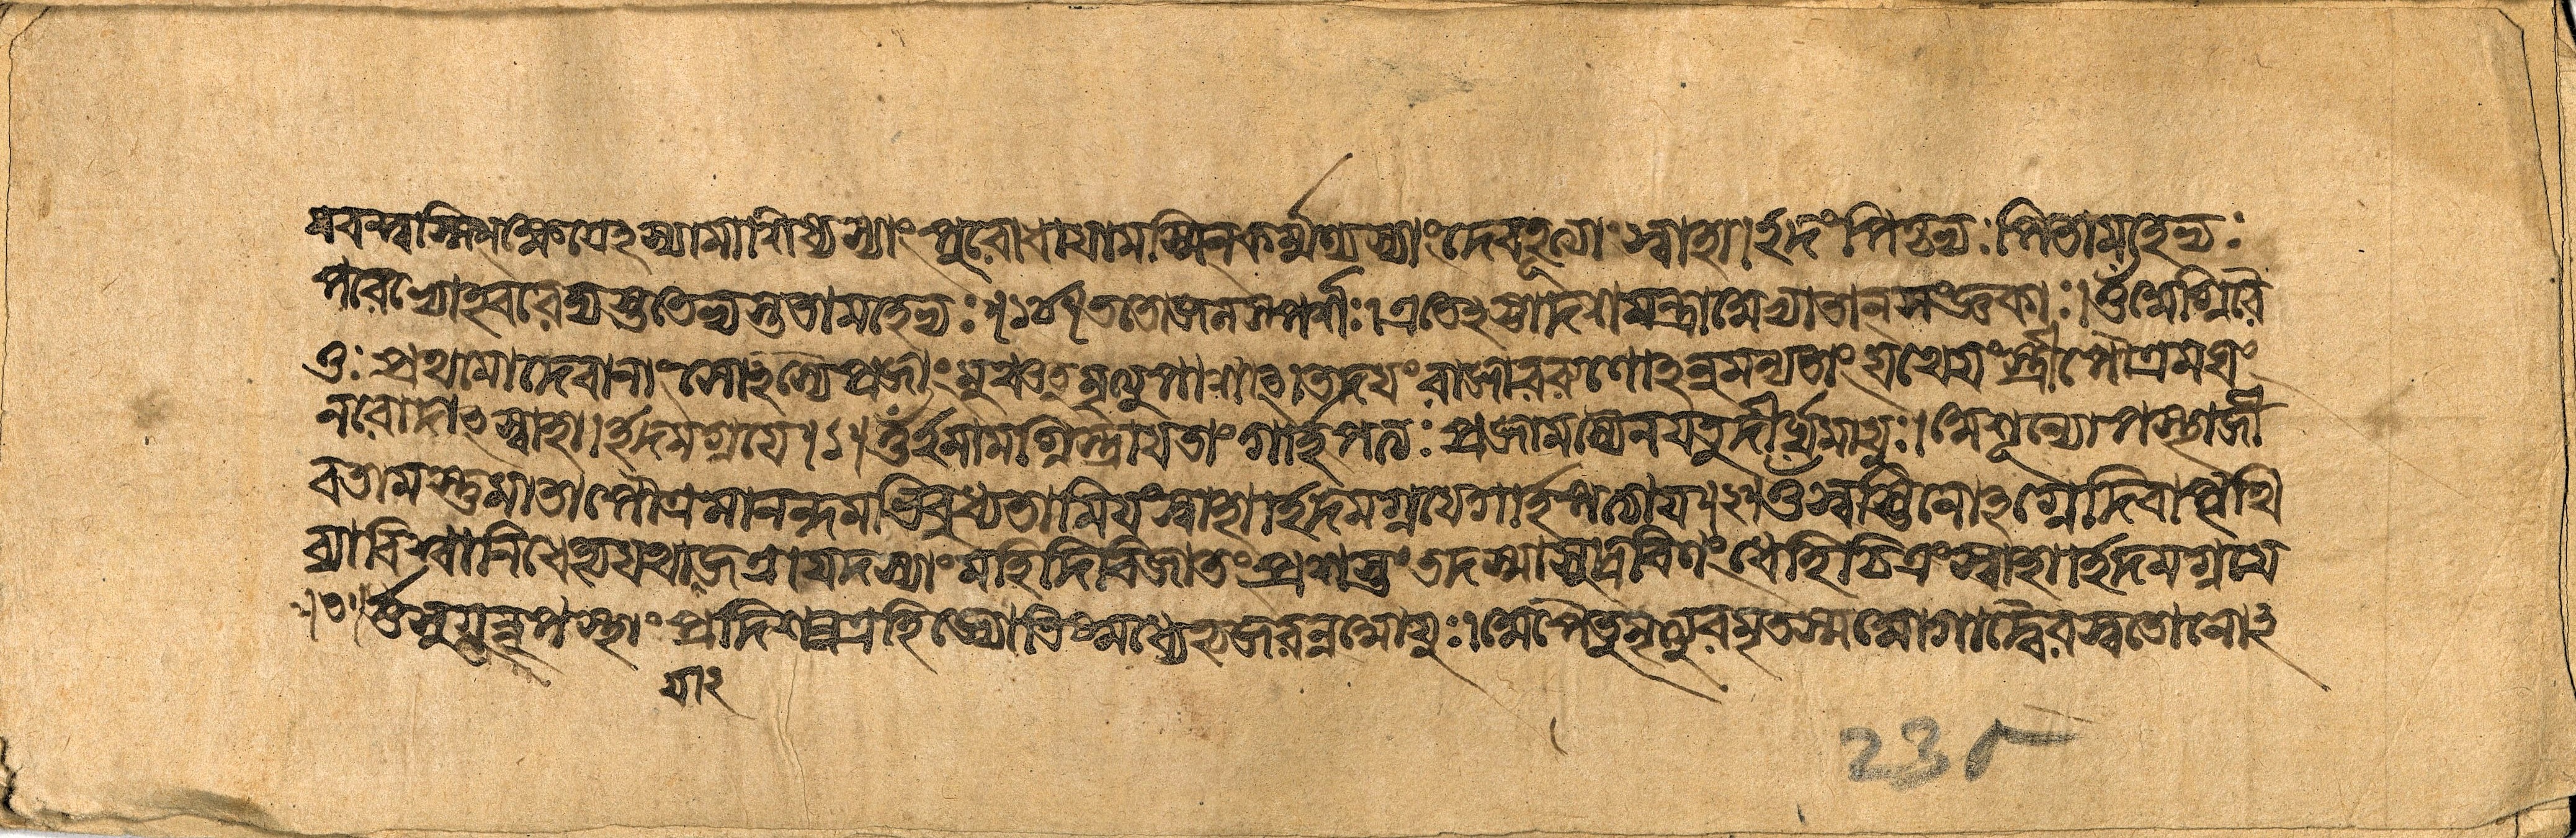 স্মিন্ব্রহ্মণ্যেঽস্যামাশিষ্যস্যাং পুরোধাযামস্মিন্কর্ম্মণ্যস্যাং দেবহূত্যাং স্বাহা। ইদং পিতৃভ্যঃ পিতামহেভ্যঃ
পরেভ্যোঽবরেভ্যস্ততেভ্যস্ততামহেভ্যঃ।১৮। ততো এতেঽষ্টাদশমন্ত্রা অভ্যাতানসংজ্ঞকাঃ। ওঁ অগ্নিরৈ
তুঃ প্রথমোদেবানাং সোঽস্যৈপ্রজাং মুঞ্চতু মৃত্যুপাশাৎ। তদযং রাজাবরুণোঽনুমন্যতাং যথেযং স্ত্রীপৌত্রমঘং
নরোদাৎস্বাহা। ইদমগ্নযে।১। ওঁ ইমামগ্নিস্ত্রাযতাং গার্হপত্যঃ প্রজামস্যৈনযতুদীর্ঘমাযুঃ। অশূন্যোপস্থাজী
বতামস্তুমাতাপৌত্রমানন্দমভিবুধ্যতামিযংস্বাহা। ইদমগ্নযেগার্হপত্যায।২। ওঁ স্বস্তিনোঽগ্নেদিবাপৃথি
ব্যাবিশ্বানিধেহ্যযথাযজত্রাযদস্যাংমহিদিবিজাতং প্রশস্তং তদস্মাসুদ্রবিণংধেহিচিত্রংস্বাহা। ইদমগ্নযে
।৩। ওঁ সুগন্নুপন্থাং প্রদিশন্নএহিজ্যোতিষ্মধ্যেহ্যজরন্নআযুঃ। অপৈতুমৃত্যুরমৃতম্মআগাদ্বৈবস্বতোনোঽ
235